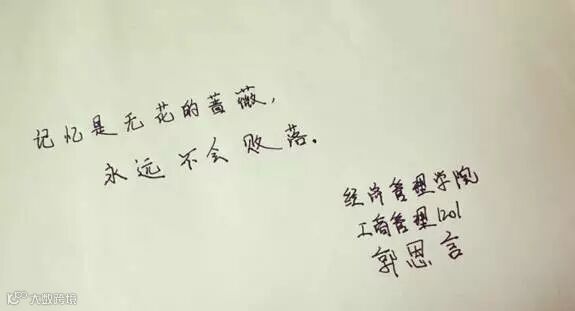 记忆是无花的蔷薇，
永远不会败落。
经济管理学院
工商管理1201
郭恩言
大数跨境